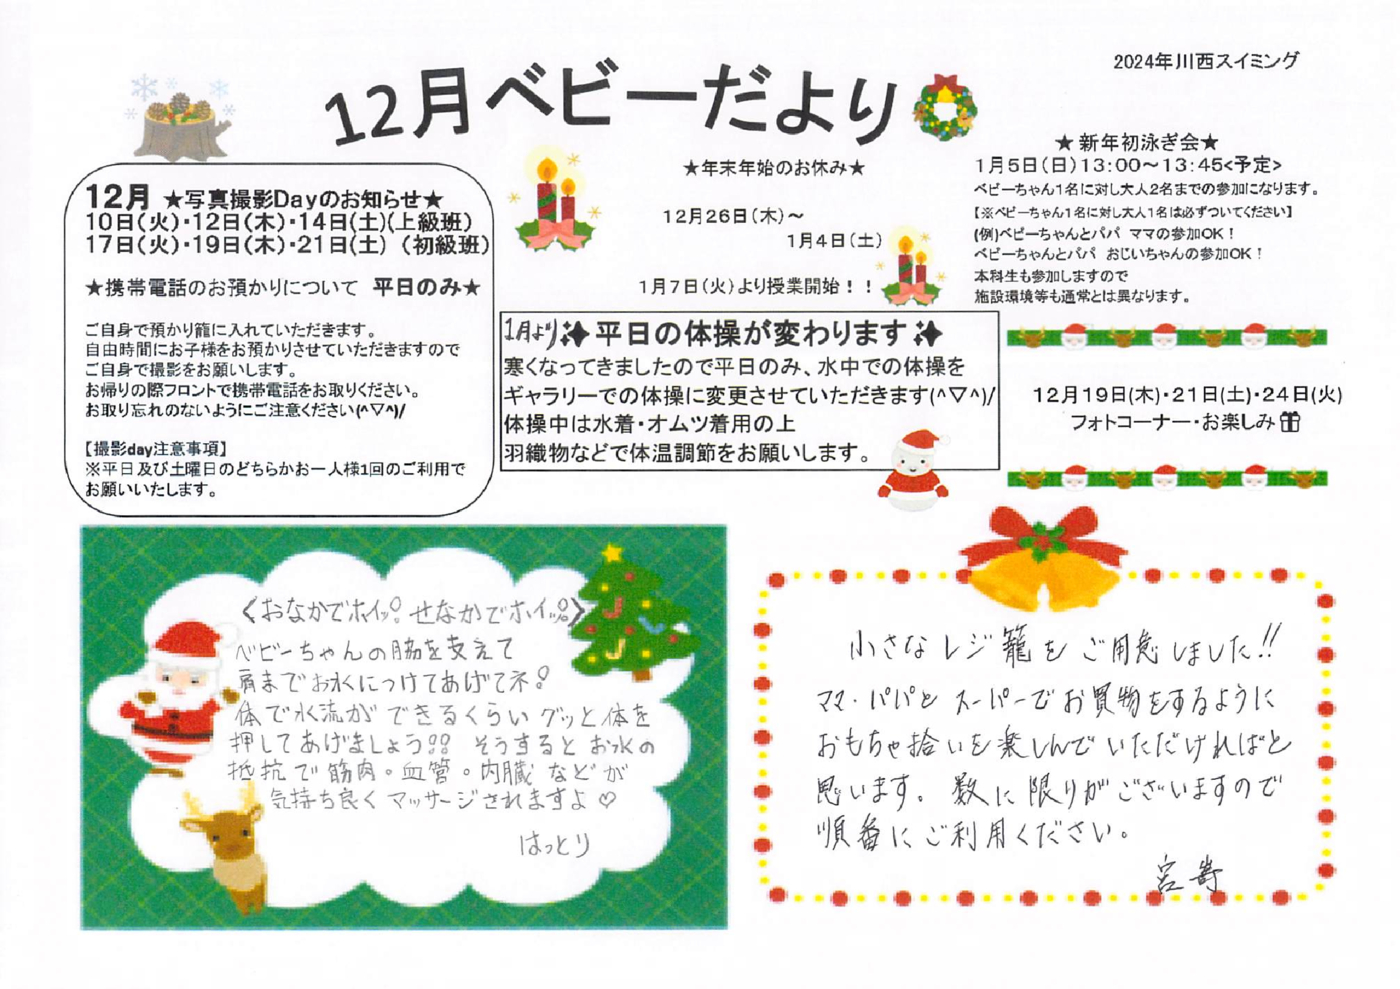 2024年川西スイミング
12月ベビーだより
12月 ★写真撮影Dayのお知らせ★
10日(火)・12日(木)・14日(土)(上級班)
17日(火)・19日(木)・21日(土) (初級班)
★携帯電話のお預かりについて 平日のみ★
ご自身で預かり籠に入れていただきます。
自由時間にお子様をお預かりさせていただきますので
ご自身で撮影をお願いします。
お帰りの際フロントで携帯電話をお取りください。
お取り忘れのないようにご注意ください(^▽^)/
【撮影day注意事項】
※平日及び土曜日のどちらかお一人様1回のご利用で
お願いいたします。
★年末年始のお休み★
12月26日(木)～
1月4日(土)
1月7日(火)より授業開始！！
1月より✨平日の体操が変わります✨
寒くなってきましたので平日のみ、水中での体操を
ギャラリーでの体操に変更させていただきます(^▽^)/
体操中は水着・オムツ着用の上
羽織物などで体温調節をお願いします。
★新年初泳ぎ会★
1月5日(日)13:00～13:45<予定>
ベビーちゃん1名に対し大人2名までの参加になります。
【※ベビーちゃん1名に対し大人1名は必ずついてください】
(例)ベビーちゃんとパパ ママの参加OK！
ベビーちゃんとパパ おじいちゃんの参加OK！
本科生も参加しますので
施設環境等も通常とは異なります。
12月19日(木)・21日(土)・24日(火)
フォトコーナー・お楽しみ🎁
〈おなかでホイッ!! せなかでホイッ!!〉
ベビーちゃんの脇を支えて
肩までお水につけてあげてネ!
体で水流ができるくらいグッと体を
押してあげましょう!! そうするとお水の
抵抗で筋肉・血管・内臓などが
気持ち良くマッサージされますよ♡
はっとり
小さなレジ籠をご用意しました!!
ママ・パパとスーパーでお買物をするように
おもちゃ拾いを楽しんでいただければと
思います。数に限りがございますので
順番にご利用ください。
宮嵜